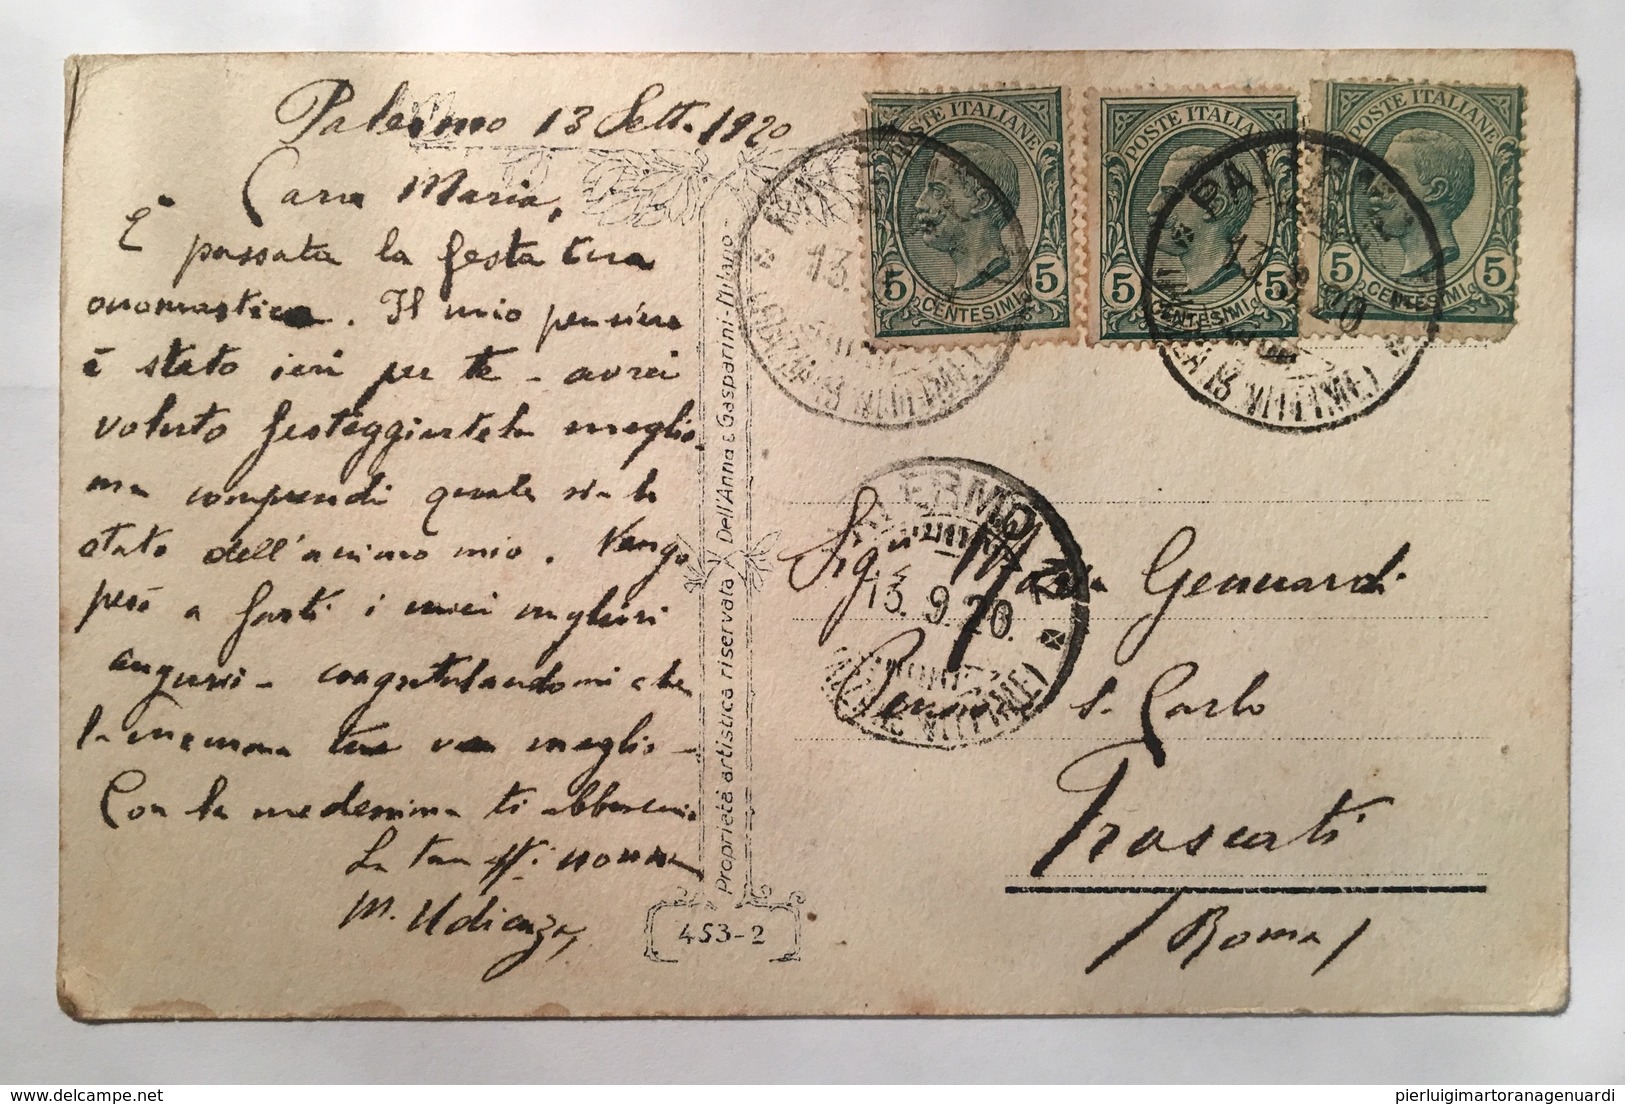 Palermo 13 Sett. 1920
Cara Maria,
È passata la festa tua
onomastica. Il mio pensiero
è stato ieri per te - avrei
voluto festeggiartela meglio,
ma comprendi quale sia lo
stato dell'animo mio. Vengo
però a farti i miei migliori
auguri - congratulandomi che
la mamma tua va meglio -
Con la medesima ti abbraccio
La tua nonna
M. Udienza
Proprietà artistica riservata Dell'Anna & Gasparini - Milano
453-2
POSTE ITALIANE
5 CENTESIMI 5
POSTE ITALIANE
5 CENTESIMI 5
POSTE ITALIANE
5 CENTESIMI 5
PALERMO
13. 9. 20.
Signa Maria Genuardi
Pensione S. Carlo
Frascati
/Roma/
pierluigimartoranagenuardi